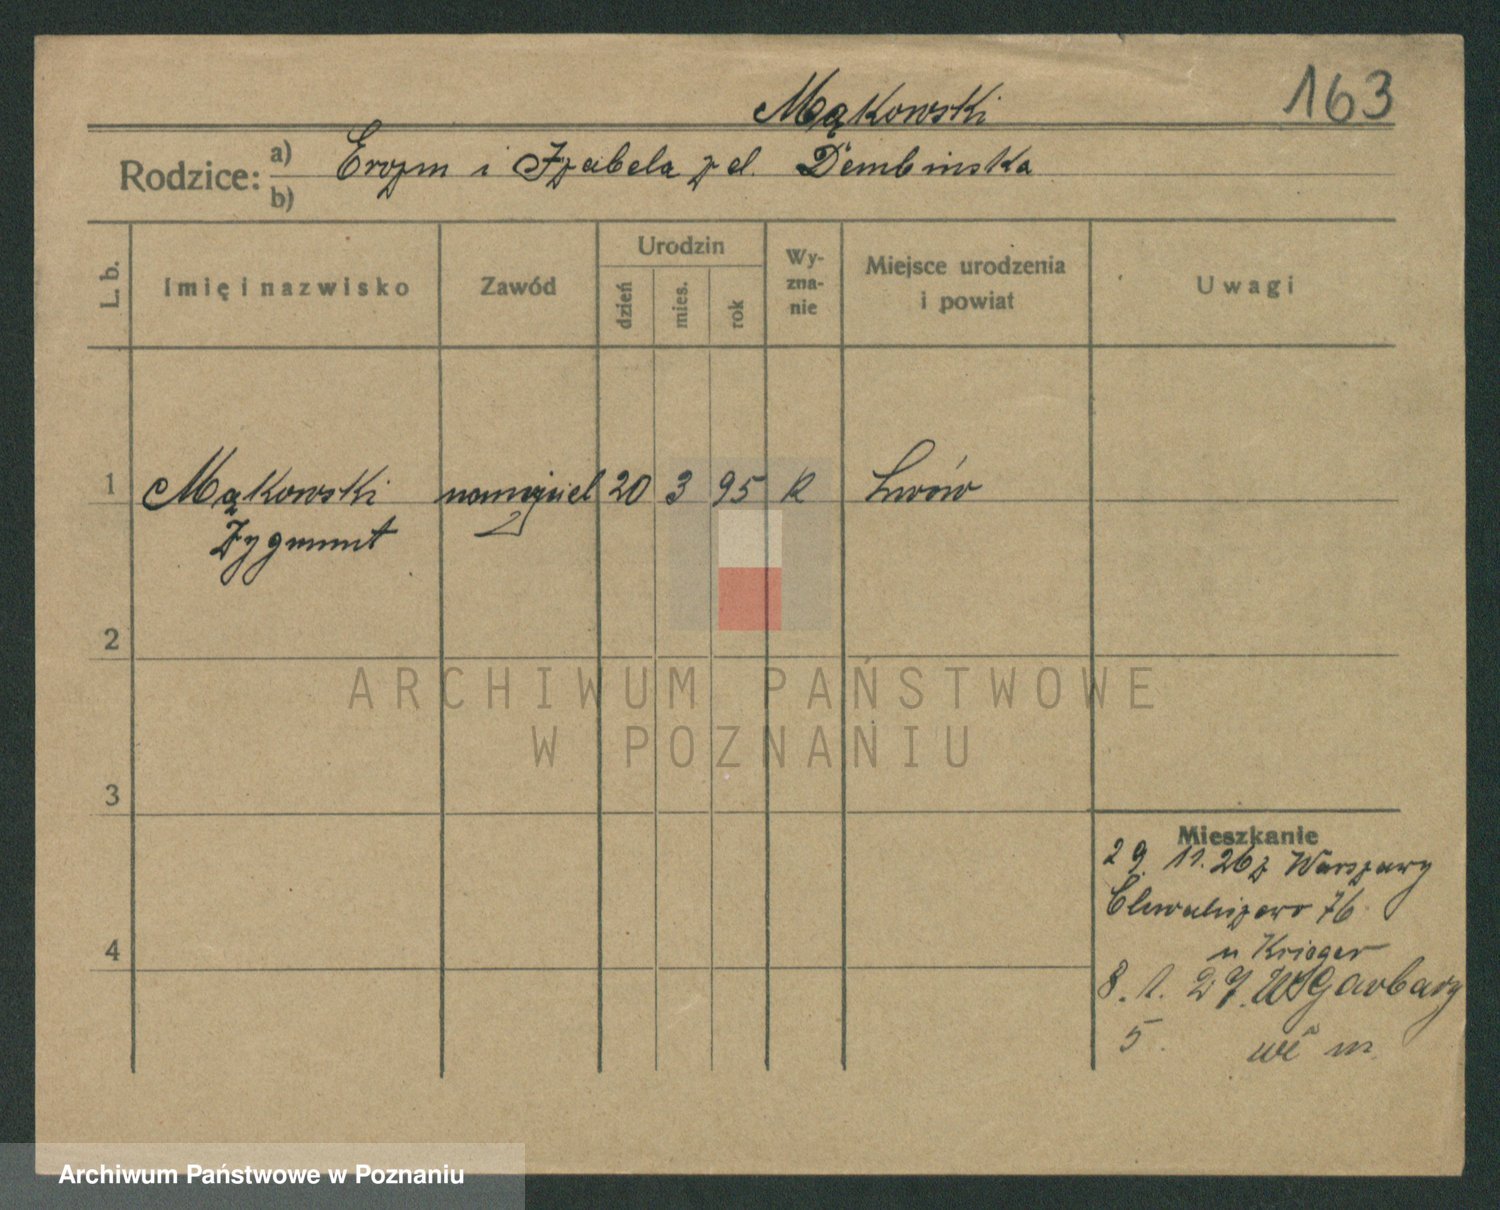 163
Mąkowski
Rodzice: a) Erozm i Izabela z d. Dembinska
b)
L. b.
Imię i nazwisko
Zawód
Urodzin
dzień
mies.
rok
Wy-
zna-
nie
Miejsce urodzenia
i powiat
Uwagi
1 Mąkowski 20 3 95 k Lwów
Zygmunt
2
ARCHIWUM PAŃSTWOWE
W POZNANIU
3
Mieszkanie
29. 11. 26 z Warszawy
Chwaliszewo 76
u Krieger
4
8. 1. 27. W Garbary
5. m.
Archiwum Państwowe w Poznaniu